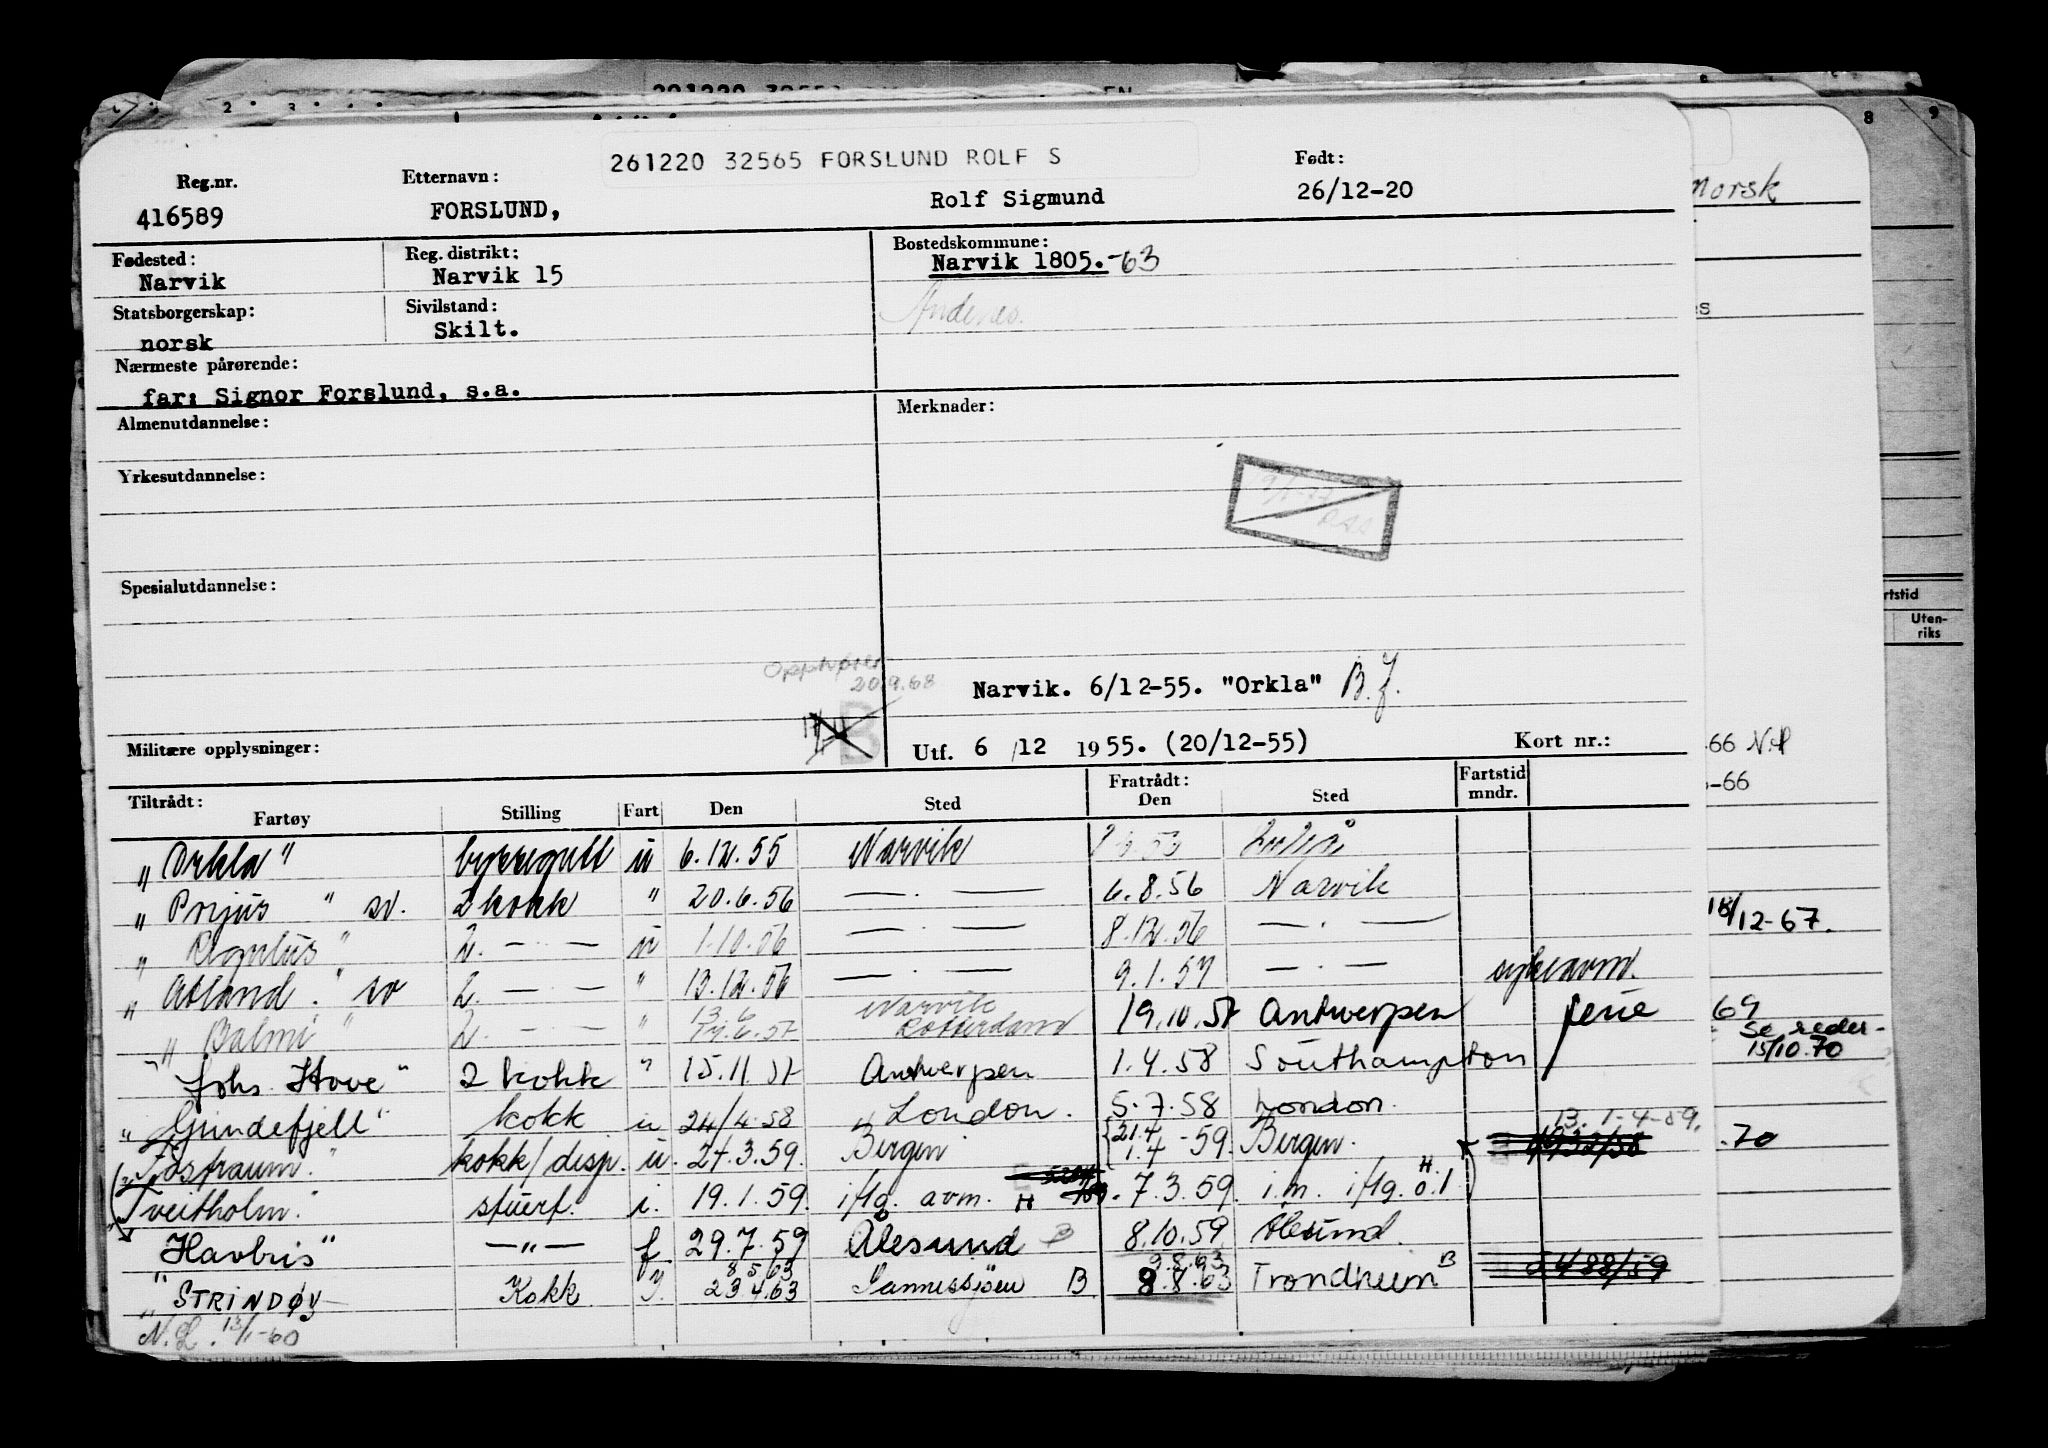 261220 32565 FORSLUND ROLF S
Reg.nr. Etternavn: Født:
416589 FORSLUND, Rolf Sigmund 26/12-20
Fødested: Reg. distrikt: Bostedskommune:
Narvik Narvik 15 Narvik 1805.-63
Statsborgerskap: Sivilstand: Andenes.
norsk Skilt.
Nærmeste pårørende:
far: Signor Forslund, s.a.
Almenutdannelse: Merknader:
Yrkesutdannelse:
Spesialutdannelse:
20.9.68
Narvik. 6/12-55. "Orkla" B.f.
B
Militære opplysninger: Utf. 6/12 1955. (20/12-55) Kort nr.:
Tiltrådt: Fratrådt: Fartstid
Fartøy Stilling Fart Den Sted Den Sted mndr.
"Orkla" byssegutt u 6.12.55 Narvik
"Porjus" sv. 2 kokk " 20.6.56 — · — 6.8.56 Narvik
"Regulus" 2. — · — u 1.10.56 — · — 8.12.56 — · —
"Abland." sv 2. — · — " 13.12.56 — · — 9.1.57 — · — sykeavm.
13.6 Narvik
"Balmi" 2. — · — " 14.6.57 Rotterdam 19.10.57 Antwerpen ferie
"Johs. Hove" 2 kokk " 15.11.57 Antwerpen 1.4.58 Southampton
"Gundefjell" kokk u 24/4.58 London. 5.7.58 London.
"Fosstraum." kokk/disp. u. 27.3.59. Bergen 21.4 1.4-59. Bergen. 13. 1-4-59.
"Tveitholm." stuert. i. 19.1.59. i flg. avm. H 7.3.59. i.m. i flg. H.ö.l
"Havbris" — " — f 29.7.59 Ålesund B 8.10.59 Ålesund.
8 5.63 9.8.63
"STRINDØY Kokk. 23 4.63 Sannessjøen B 8.8.63 Trondheim B 5488/59
N.L. 13/1-60
norsk
-66
-66
18/12-67.
69
Se reder-
15/10.70
.70
Uten-
riks